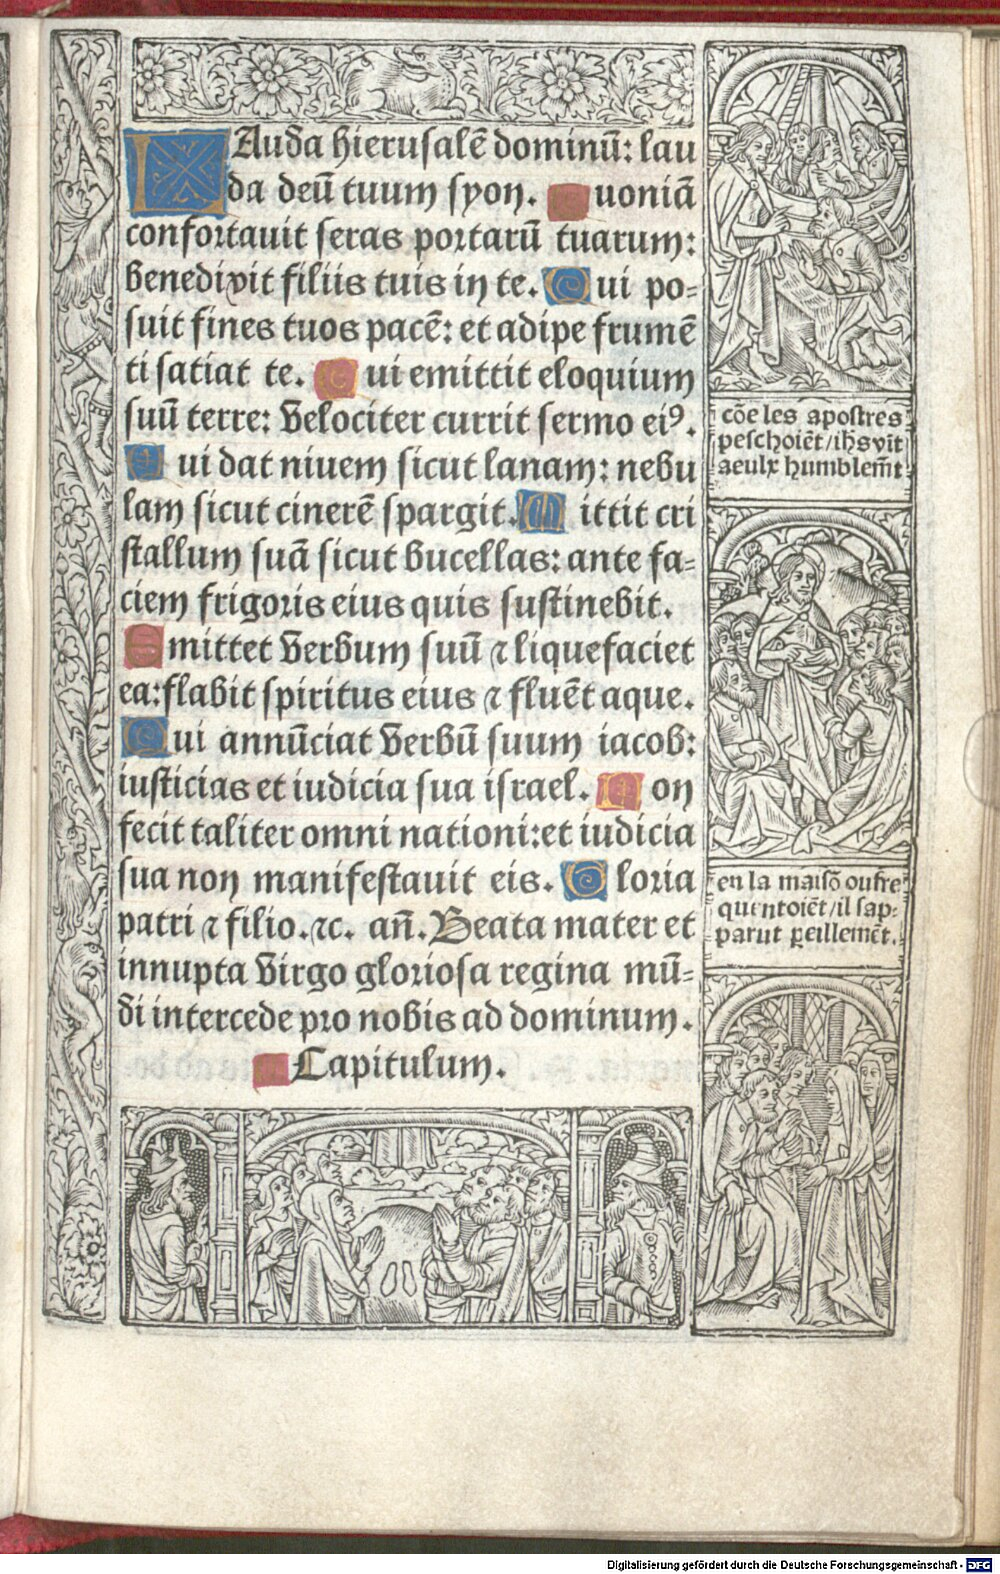 LAuda hierusalē dominū: lau
da deū tuum syon. Quoniā
confortauit seras portarū tuarum:
benedixit filiis tuis in te. Qui po-
suit fines tuos pacē: et adipe frumē
ti satiat te. Qui emittit eloquium
suū terre: velociter currit sermo eiꝰ.
Qui dat niuem sicut lanam: nebu
lam sicut cinerē spargit. Mittit cri
stallum suā sicut bucellas: ante fa-
ciem frigoris eius quis sustinebit.
Emittet verbum suū ⁊ liquefaciet
ea: flabit spiritus eius ⁊ fluēt aque.
Qui annūciat verbū suum iacob:
iusticias et iudicia sua israel. Non
fecit taliter omni nationi: et iudicia
sua non manifestauit eis. Gloria
patri ⁊ filio. ⁊c. añ. Beata mater et
innupta virgo gloriosa regina mū-
di intercede pro nobis ad dominum.
Capitulum.
cōe les apostres
peschoiēt/ihs vīt
a eulx humblem̄t
en la maisō ou fre
quentoiēt/il sap-
parut ꝑeillemēt.
Digitalisierung gefördert durch die Deutsche Forschungsgemeinschaft - DFG